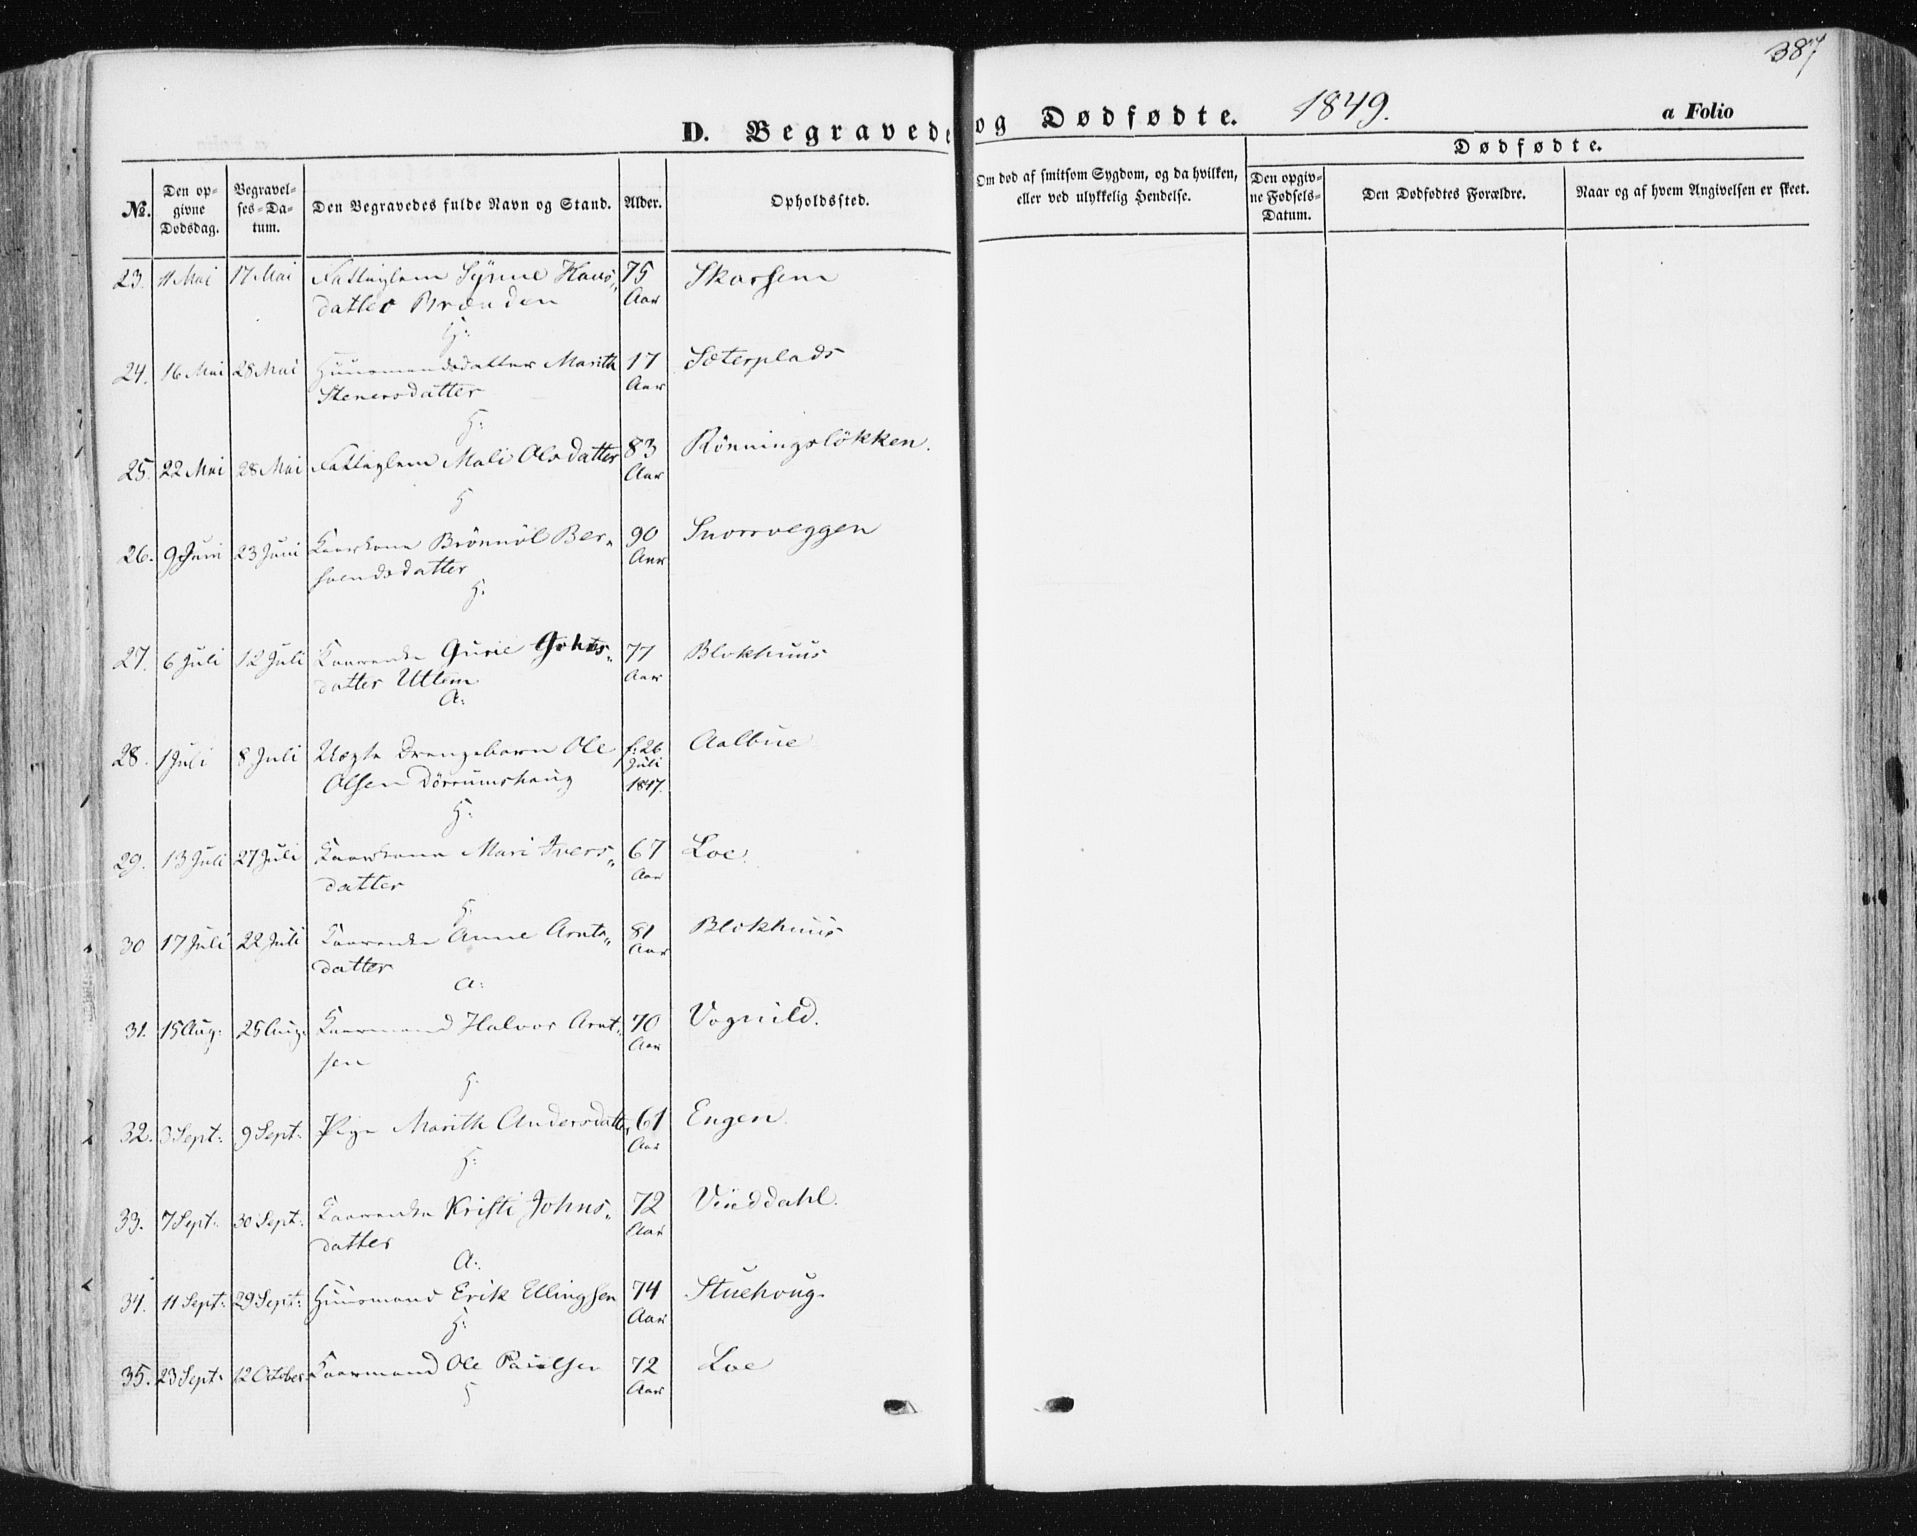 387
D. Begravede og Dødfødte. 1849. a Folio
Dødfødte.
No. Den opgivne Dødsdag. Begravelses-Datum. Den Begravedes fulde Navn og Stand. Alder. Opholdssted. Om død af smitsom Sygdom, og da hvilken, eller ved ulykkelig Hendelse. Den opgivne Fødsels-Datum. Den Dødfødtes Forældre. Naar og af hvem Angivelsen er skeet.
23. 11 Mai 17 Mai Fattiglem Synne Hans- 75 Skarsem
datter Brænden Aar
H:
24. 16 Mai 28 Mai Huusmandsdatter Marith 17 Sæterplads
Stenersdatter Aar
H:
25. 22 Mai 28 Mai Fattiglem Mali Olsdatter 83 Rönningslökken.
Aar
H
26. 9 Juni 23 Juni Kaarkone Brönnöl Ber- 90 Snorroeggen
sendsdatter Aar
H.
27. 6 Juli 12 Juli Kaarenke Gurie Johns- 77 Blokhuus
datter Uttem Aar
A:
28. 1 Juli 8 Juli Uægte Drengebarn Ole f: 26 Aalbue
Olsen Dörrumshaug Juli
1847.
H:
29. 13 Juli 27 Juli Kaarkone Mari Ivers- 67 Loe.
datter Aar
H.
30 17 Juli 22 Juli Kaarenke Anne Arnts- 81 Blokhuus
datter Aar
A:
31. 15 Aug: 25 Aug: Kaarmand Halvor Arnt- 70 Vognild.
sen Aar
H
32. 3 Sept: 9 Sept: Pige Marith Andersdatter 61 Engen.
Aar
H:
33. 7 Sept: 30 Sept: Kaarenke Kristi Johns- 72 Vinddahl.
datter Aar
A:
34. 11 Sept: 29 Sept: Huusmand Erik Ellingsen 74 Stuehoug
Aar
H:
35. 23 Sept: 12 October Kaarmand Ole Paulsen 72 Loe
Aar
H